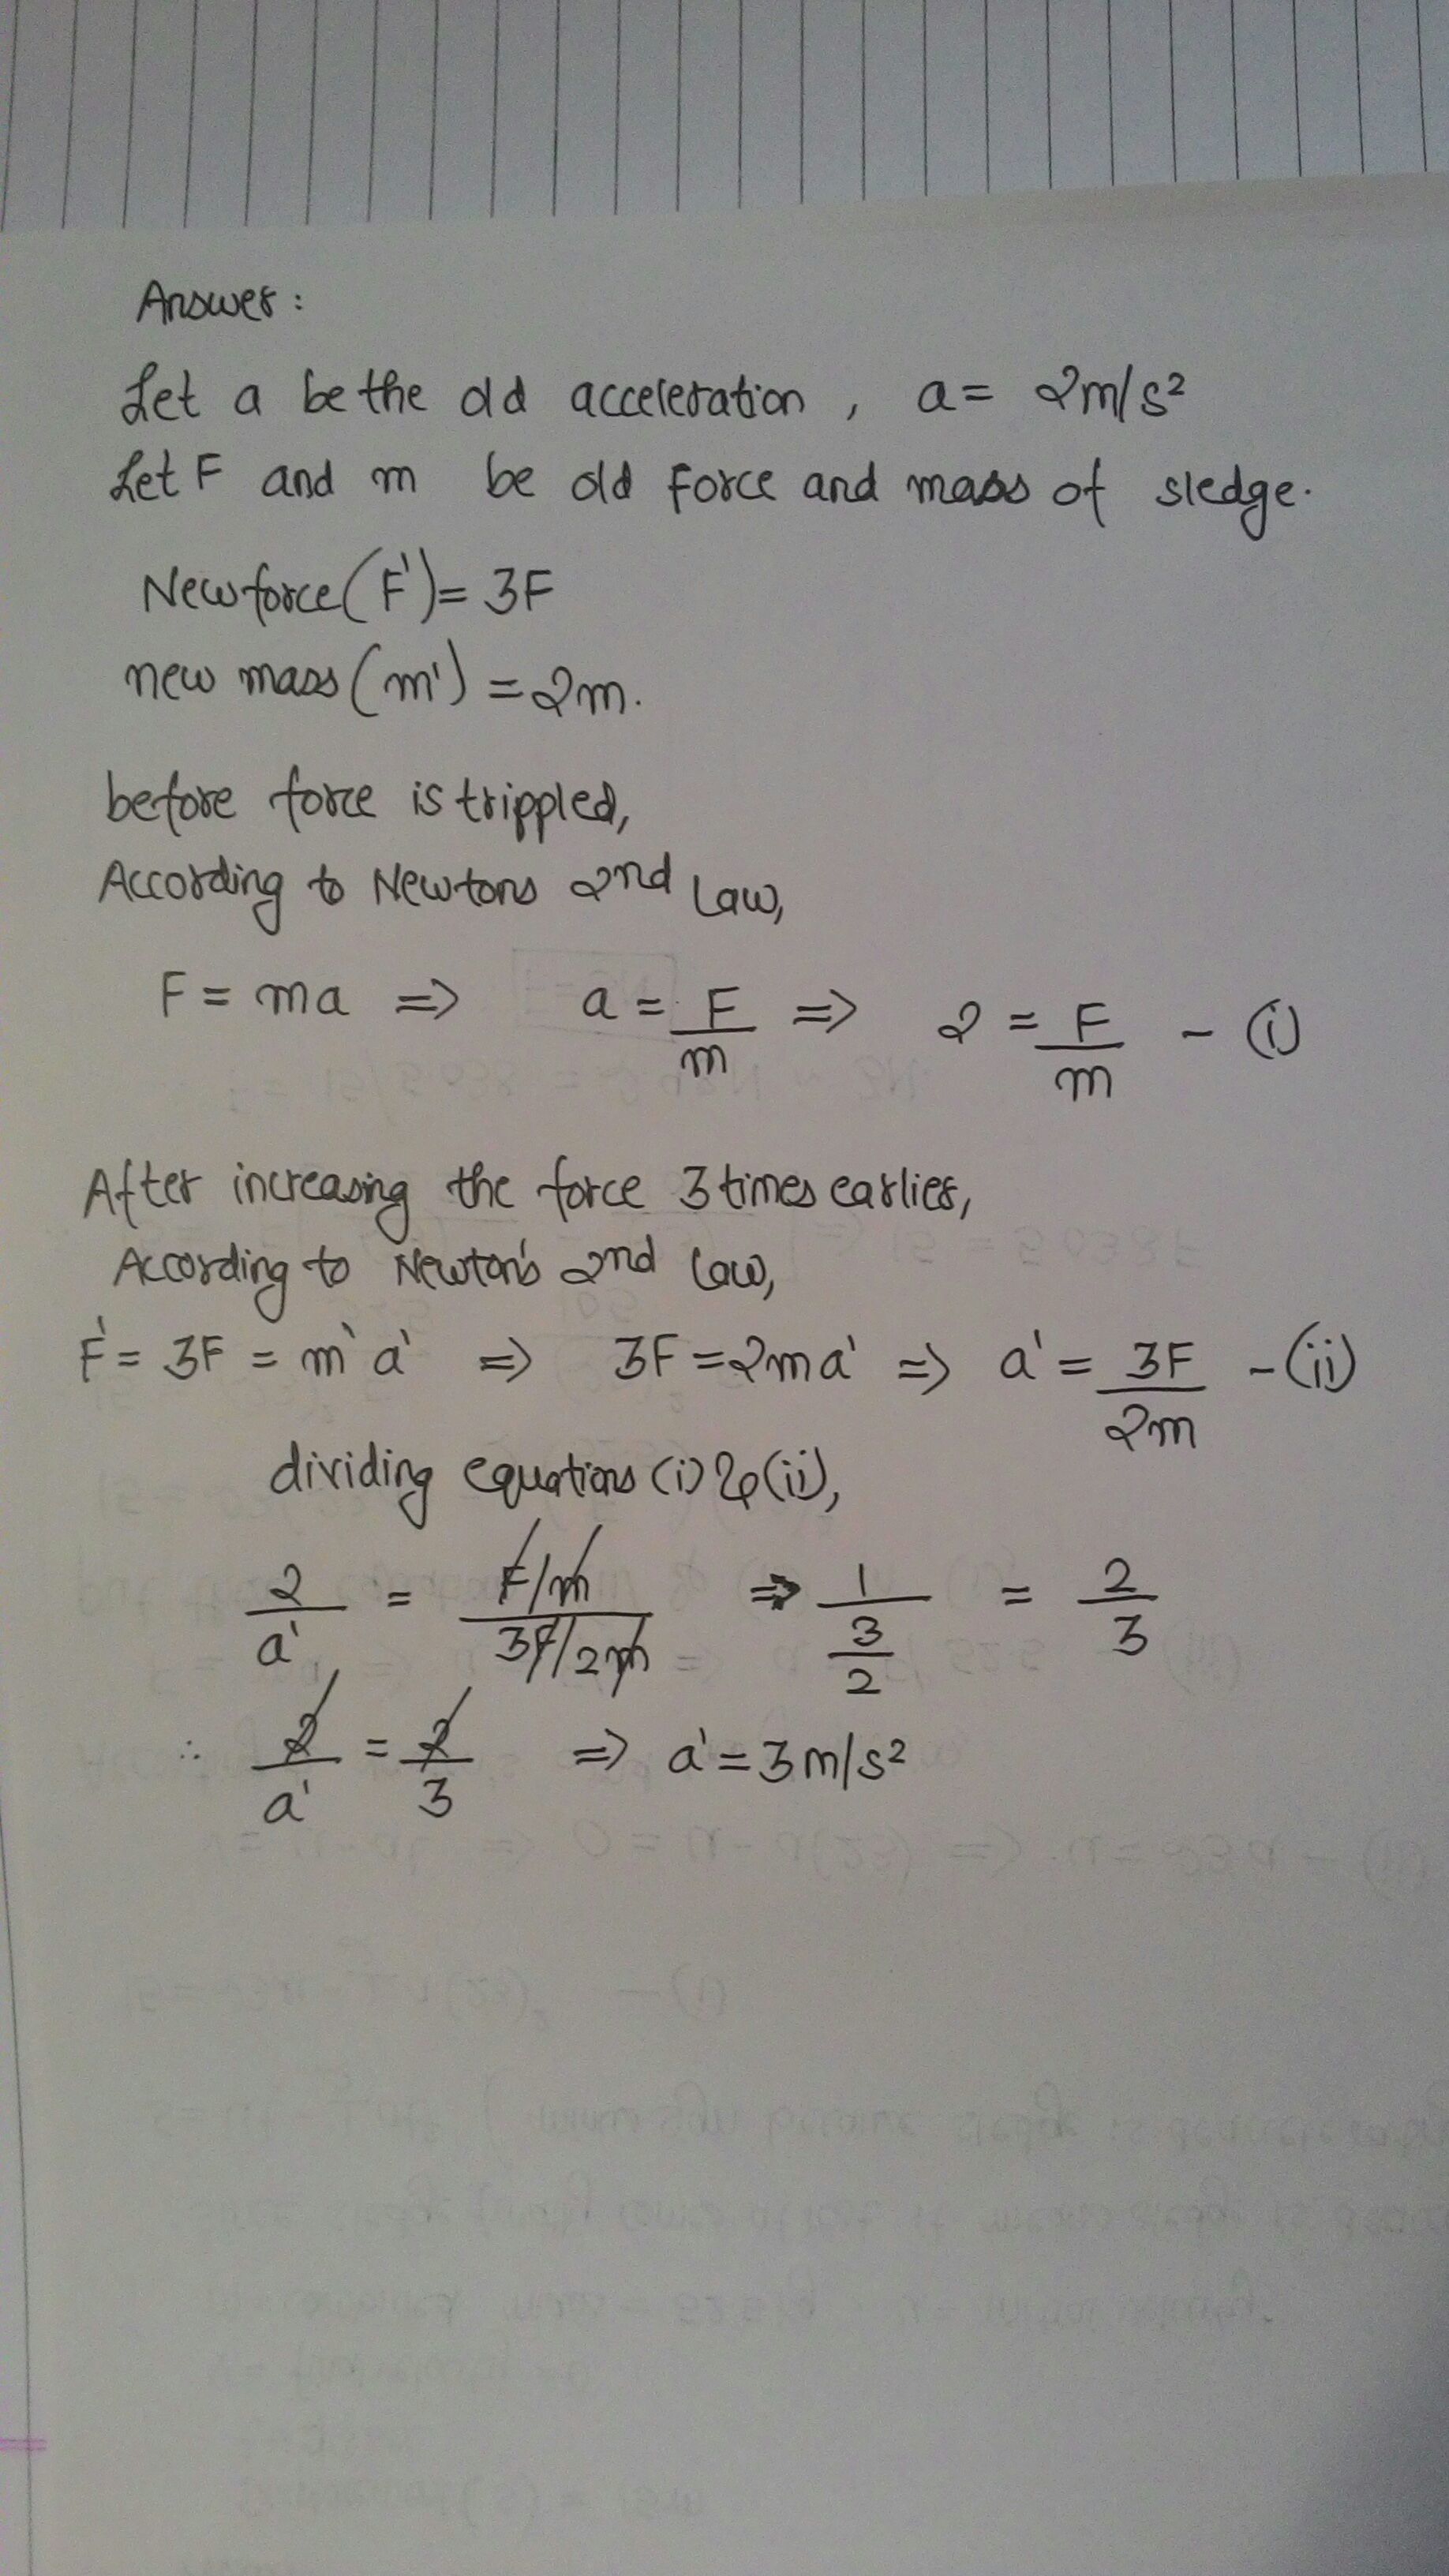 Answer:
Let a be the old acceleration, a = 2m/s²
Let F and m be old Force and mass of sledge.
New force (F') = 3F
new mass (m') = 2m.
before force is trippled,
According to Newtons 2nd Law,
F = ma => a = F/m => 2 = F/m - (i)
After increasing the force 3 times earlier,
According to Newton's 2nd law,
F' = 3F = m' a' => 3F = 2ma' => a' = 3F/2m - (ii)
dividing equations (i) & (ii),
2/a' = (F/m)/(3F/2m) => 1/(3/2) = 2/3
∴ 2/a' = 2/3 => a' = 3m/s²